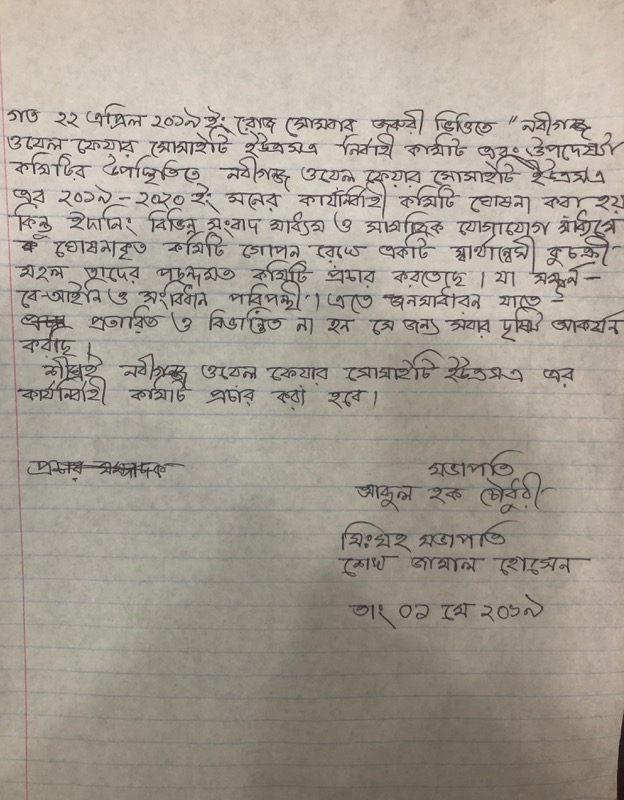 গত ২২ এপ্রিল ২০১৯ ইং রোজ সোমবার জরুরী ভিত্তিতে "নবীগঞ্জ
ওয়েল ফেয়ার সোসাইটি ইউএসএ নির্বাহী কমিটি এবং উপদেষ্টা
কমিটির উপস্থিতিতে নবীগঞ্জ ওয়েল ফেয়ার সোসাইটি ইউএসএ
এর ২০১৯-২০২০ ইং সনের কার্যনির্বাহী কমিটি ঘোষনা করা হয়
কিন্তু ইদানিং বিভিন্ন সংবাদ মাধ্যম ও সামাজিক যোগাযোগ মাধ্যমে
ঘোষনাকৃত কমিটি গোপন রেখে একটি স্বার্থান্বেসী কুচক্রী
মহল তাদের পছন্দমত কমিটি প্রচার করতেছে। যা সম্পূর্ন-
বে-আইনি ও সংবিধান পরিপন্থী। এতে জনসাধারন যাতে-
প্রতারিত ও বিভ্রান্তিত না হন সে জন্য সবার দৃষ্টি আকর্ষন
করছি।
শীঘ্রই নবীগঞ্জ ওয়েল ফেয়ার সোসাইটি ইউএসএ এর
কার্যনির্বাহী কমিটি প্রচার করা হবে।
প্রচার সম্পাদক
সভাপতি
আব্দুল হক চৌধুরী
সিঃসহ সভাপতি
শেখ জামাল হোসেন
তাং ০১ মে ২০১৯